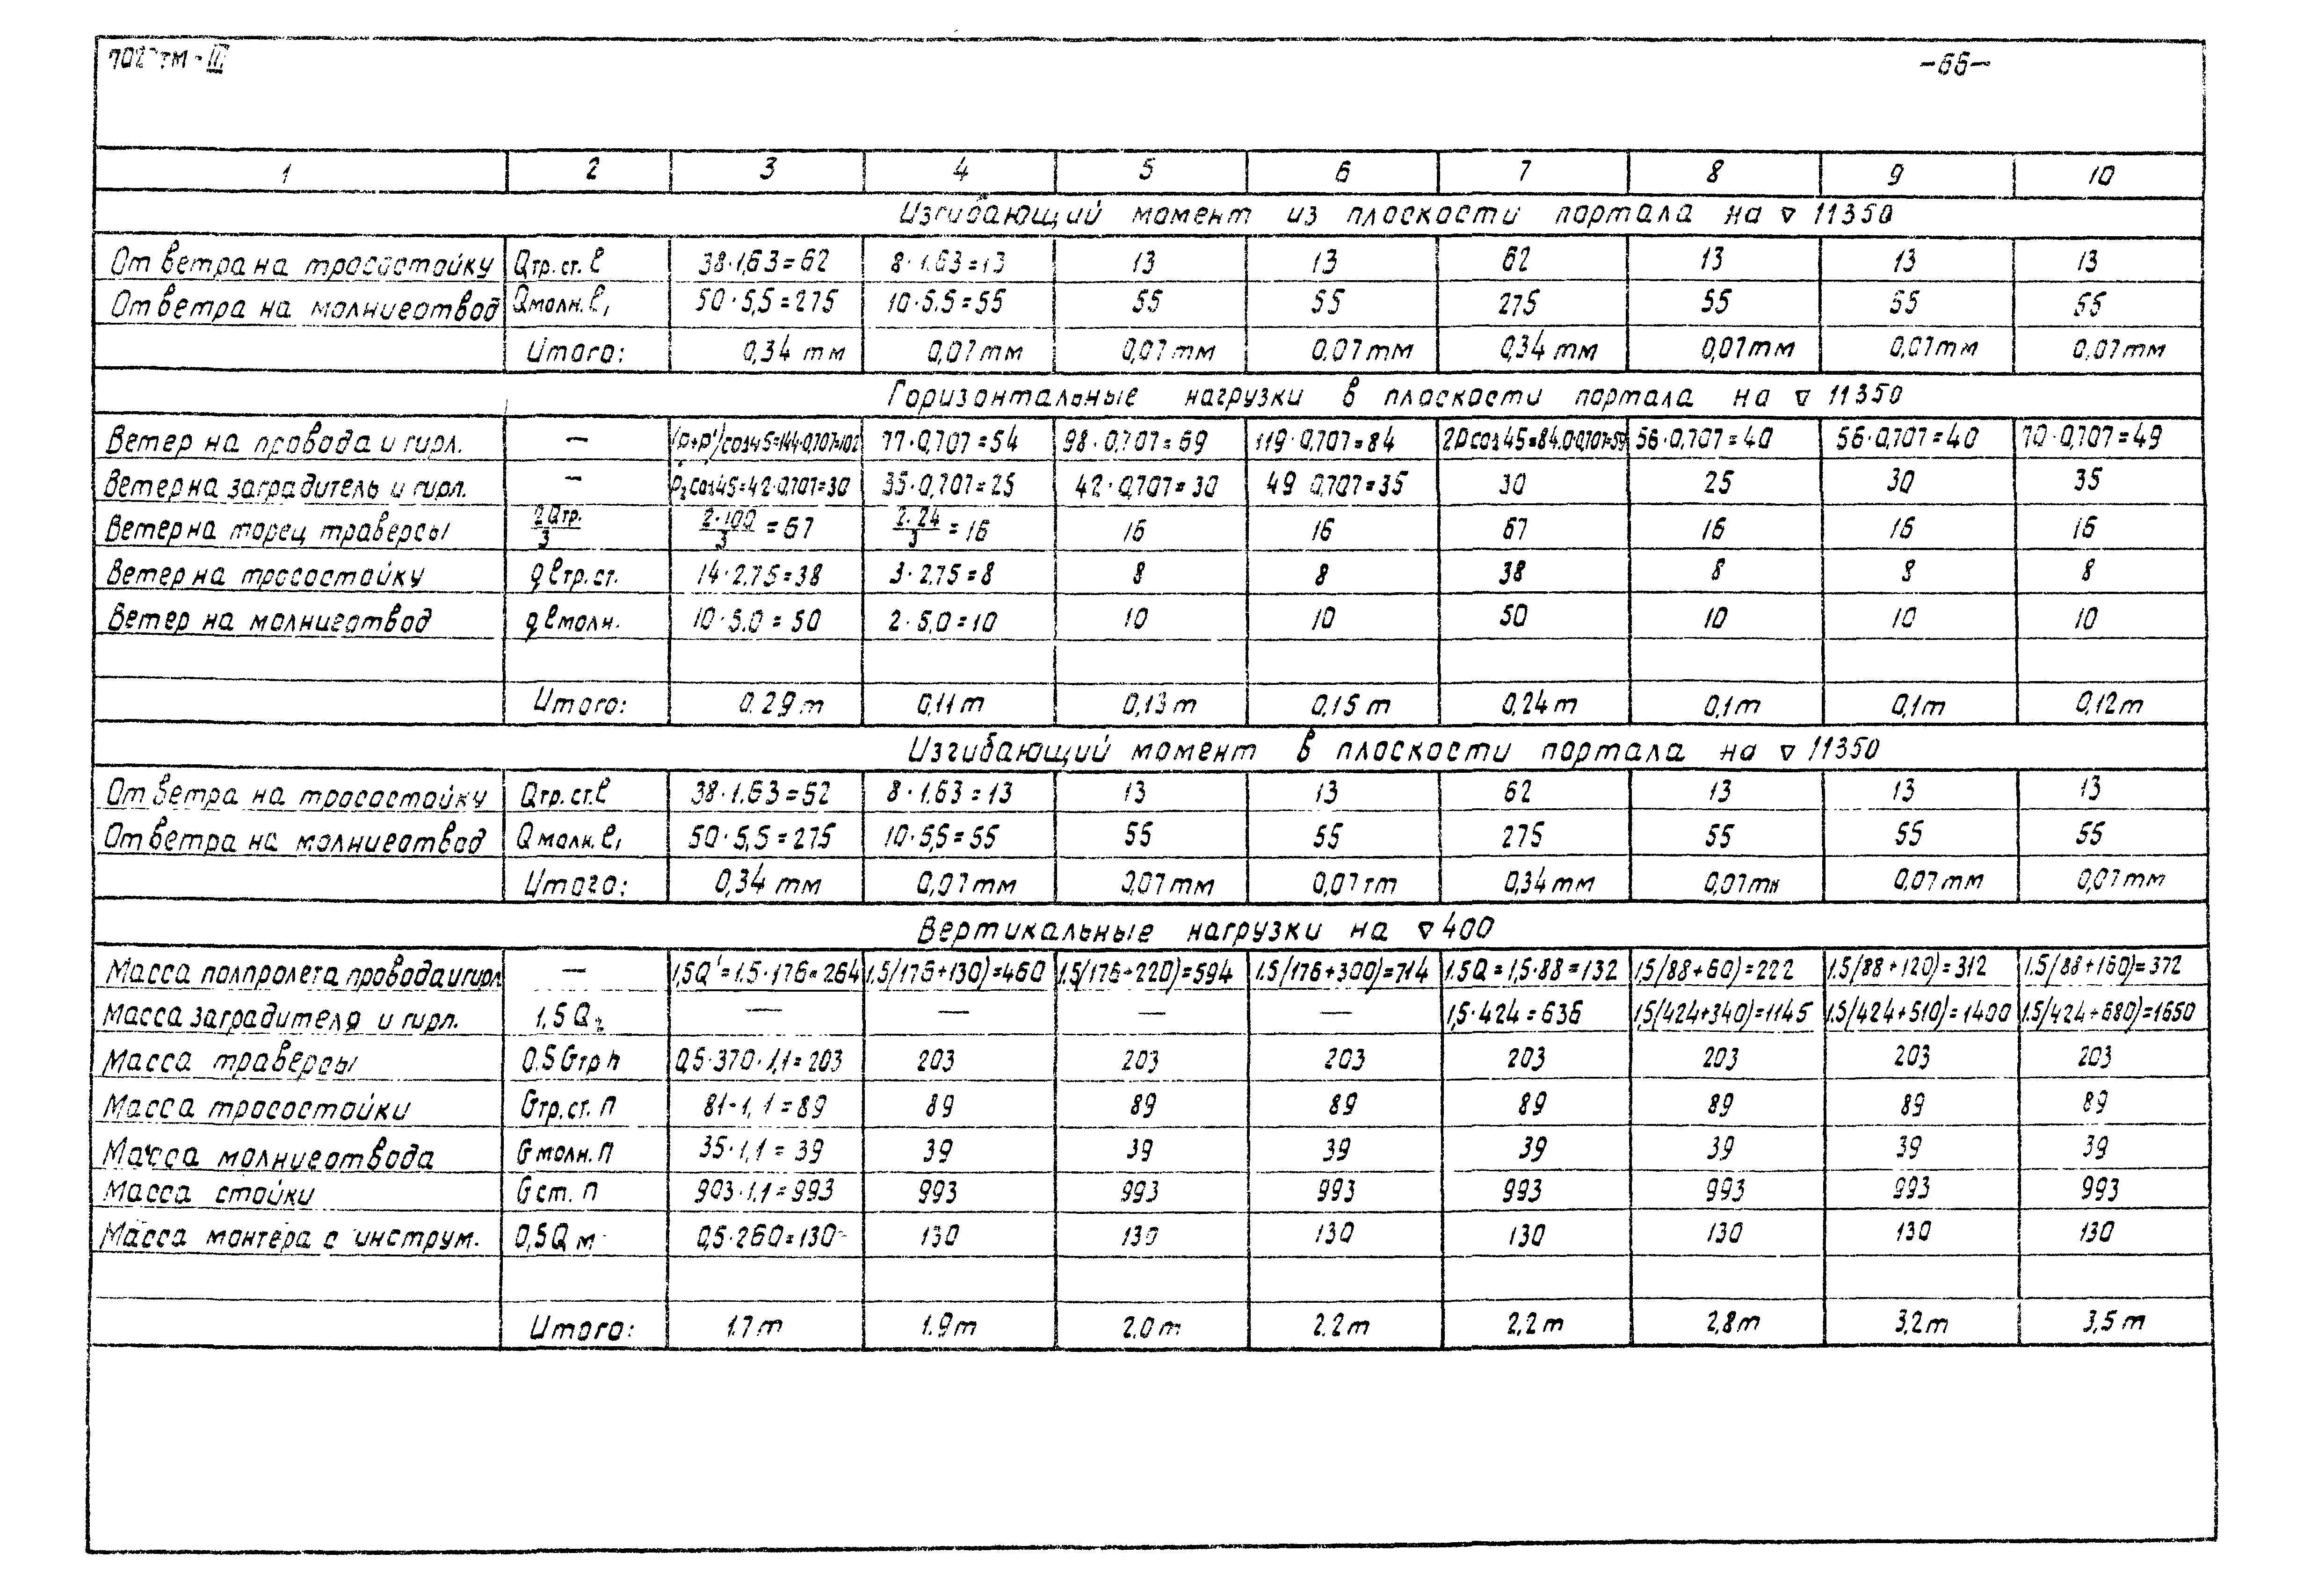 тм - III
-66-
1 2 3 4 5 6 7 8 9 10
Изгибающий момент из плоскости портала на ▽ 11350
От ветра на тросостойку Qтр.ст. ℓ 38·1,63=62 8·1.63=13 13 13 62 13 13 13
От ветра на молниеотвод Qмолн. ℓ₁ 50·5,5=275 10·5.5=55 55 55 275 55 55 55
Итого: 0,34 тм 0,07 тм 0,07 тм 0,07 тм 0,34 тм 0,07 тм 0,07 тм 0,07 тм
Горизонтальные нагрузки в плоскости портала на ▽ 11350
Ветер на провода и гирл. — (р+р')cos45=144·0,707=102 77·0,707=54 98·0,707=69 119·0,707=84 2Pcos45=84.0·0,707=59 56·0,707=40 56·0,707=40 70·0,707=49
Ветер на заградитель и гирл. — P₂cos45=42·0,707=30 35·0,707=25 42·0,707=30 49 0,707=35 30 25 30 35
Ветер на торец траверсы 2Qтр./3 2·100/3=67 2·24/3=16 16 16 67 16 16 16
Ветер на тросостойку qℓтр.ст. 14·2,75=38 3·2,75=8 8 8 38 8 8 8
Ветер на молниеотвод qℓмолн. 10·5.0=50 2·5,0=10 10 10 50 10 10 10
Итого: 0.29 т 0,11 т 0,13 т 0,15 т 0,24 т 0,1 т 0,1 т 0,12 т
Изгибающий момент в плоскости портала на ▽ 11350
От ветра на тросостойку Qтр.ст.ℓ 38·1.63=62 8·1,63=13 13 13 62 13 13 13
От ветра на молниеотвод Qмолн. ℓ₁ 50·5,5=275 10·5,5=55 55 55 275 55 55 55
Итого: 0,34 тм 0,07 тм 0,07 тм 0,07 тм 0,34 тм 0,07 тм 0,07 тм 0,07 тм
Вертикальные нагрузки на ▽ 400
Масса полпролета провода и гирл. — 1,5Q'=1.5·176=264 1.5(176+130)=460 1.5(176+220)=594 1.5(176+300)=714 1.5Q=1,5·88=132 1,5(88+60)=222 1.5(88+120)=312 1.5(88+160)=372
Масса заградителя и гирл. 1,5Q₂ — — — — 1,5·424=636 1,5(424+340)=1145 1.5(424+510)=1400 1.5(424+680)=1650
Масса траверсы 0.5Gтр n 0,5·370·1,1=203 203 203 203 203 203 203 203
Масса тросостойки Gтр.ст. п 81·1,1=89 89 89 89 89 89 89 89
Масса молниеотвода Gмолн. п 35·1,1=39 39 39 39 39 39 39 39
Масса стойки Gст. п 903·1.1=993 993 993 993 993 993 993 993
Масса монтера с инструм. 0,5Qм 0,5·260=130 130 130 130 130 130 130 130
Итого: 1.7 т 1.9 т 2.0 т 2.2 т 2,2 т 2,8 т 3,2 т 3,5 т